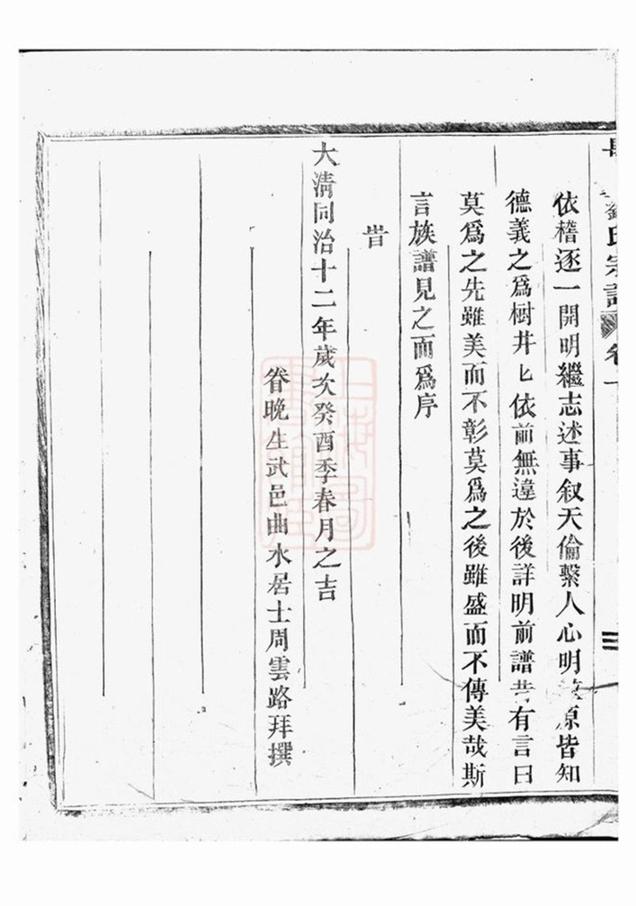 劉氏宗譜 卷
依稽逐一開明繼志述事叙天倫繫人心明 原皆知
德義之爲樹井匕依前無違於後詳明前譜昔有言曰
莫爲之先雖美而不彰莫爲之後雖盛而不傳美哉斯
言族譜見之而爲序
旹
大清同治十二年歲次癸酉季春月之吉
眷晚生武邑曲水居士周雲路拜撰